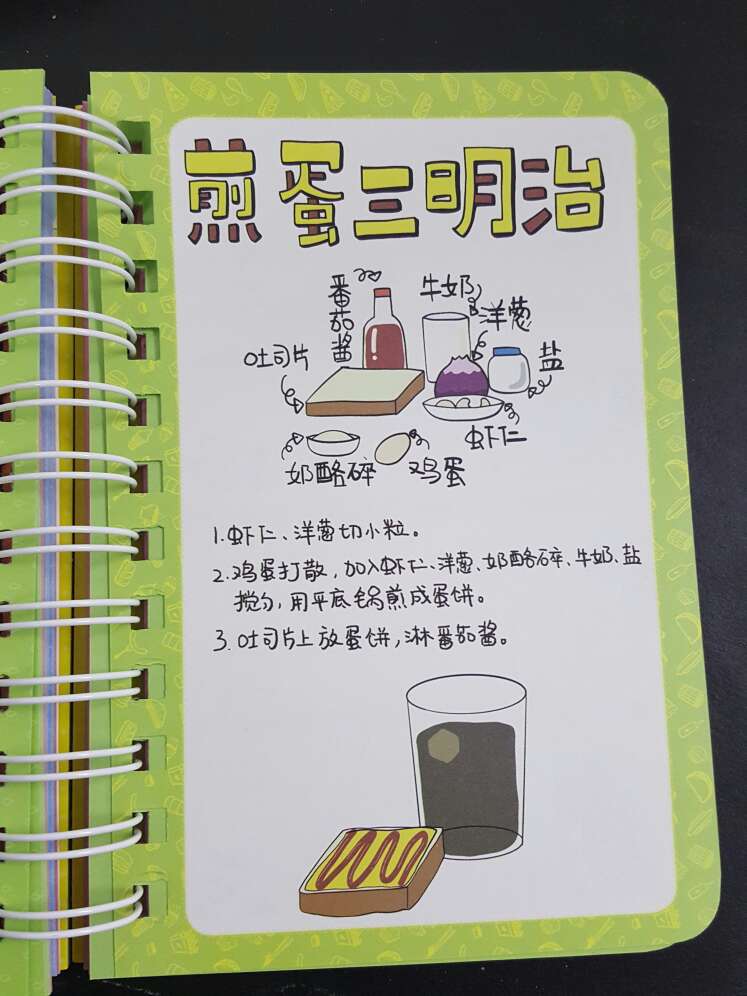 煎蛋三明治
番茄酱
牛奶
洋葱
吐司片
盐
虾仁
奶酪碎
鸡蛋
1.虾仁、洋葱切小粒。
2.鸡蛋打散,加入虾仁、洋葱、奶酪碎、牛奶、盐
搅匀,用平底锅煎成蛋饼。
3.吐司片上放蛋饼,淋番茄酱。